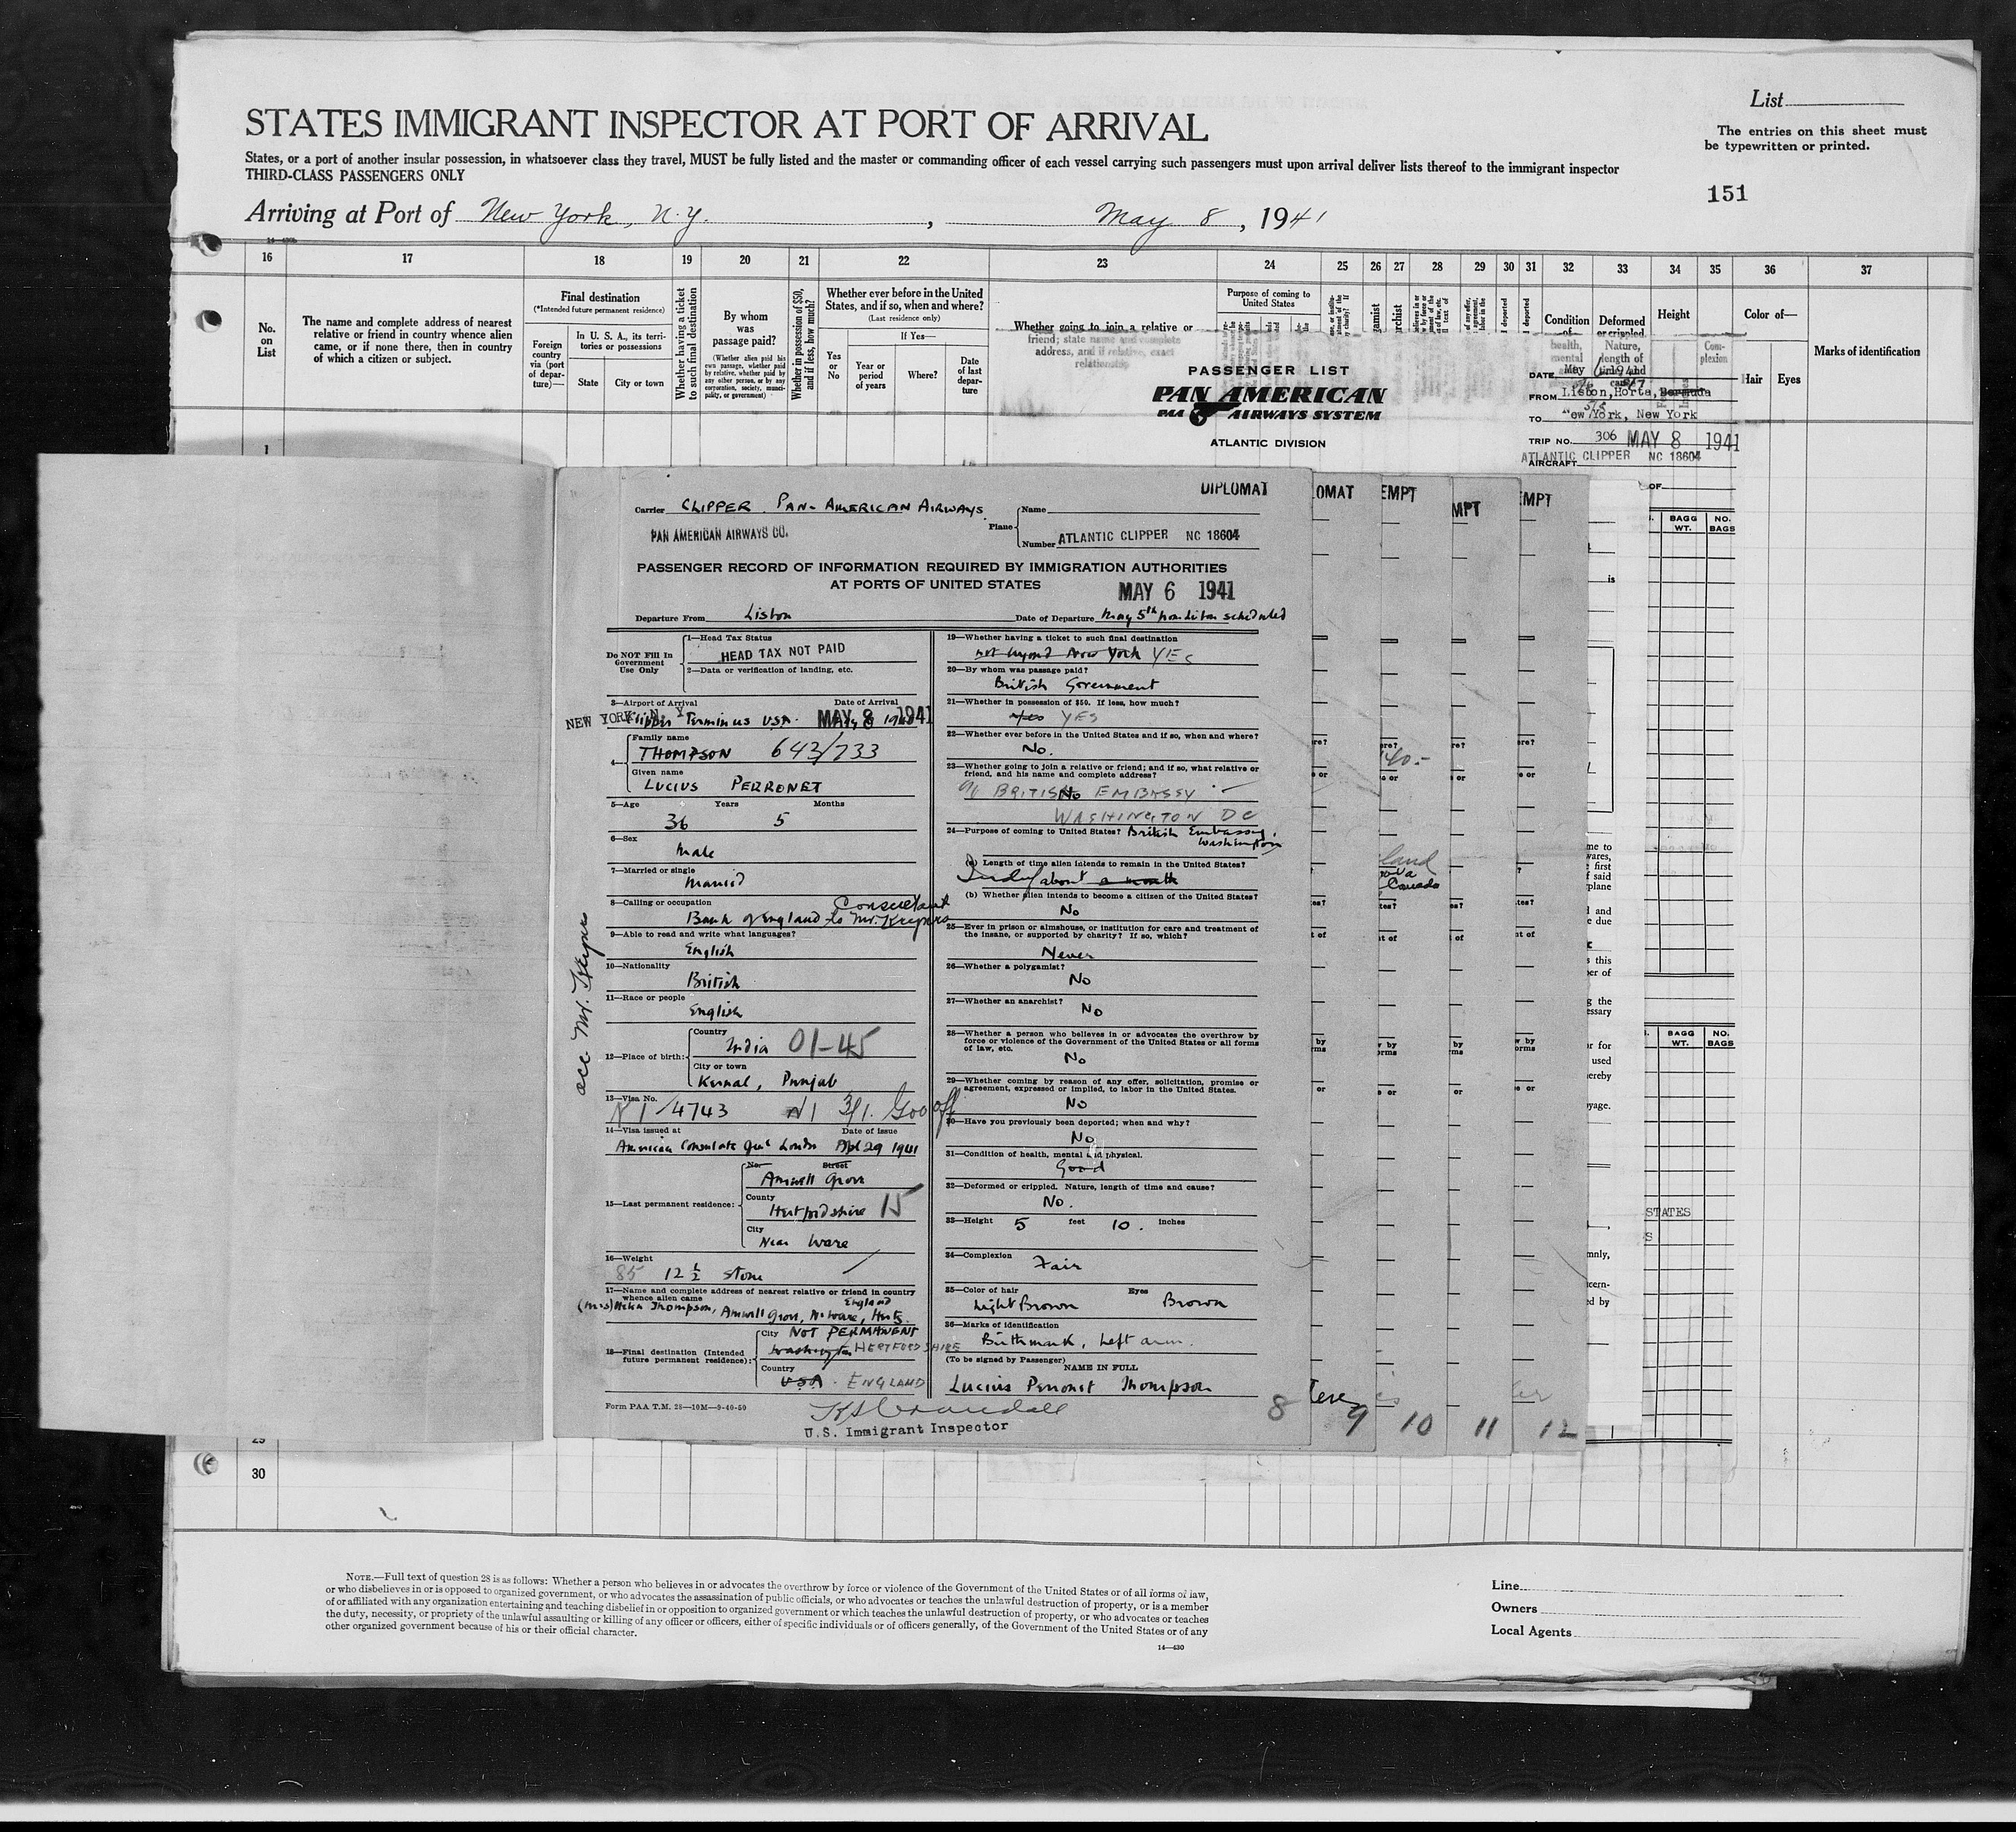 List
STATES IMMIGRANT INSPECTOR AT PORT OF ARRIVAL
The entries on this sheet must
be typewritten or printed.
States, or a port of another insular possession, in whatsoever class they travel, MUST be fully listed and the master or commanding officer of each vessel carrying such passengers must upon arrival deliver lists thereof to the immigrant inspector
THIRD-CLASS PASSENGERS ONLY
151
Arriving at Port of New York, N.Y., May 8, 1941
16 17 18 19 20 21 22 23 24 25 26 27 28 29 30 31 32 33 34 35 36 37
No.
on
List
The name and complete address of nearest
relative or friend in country whence alien
came, or if none there, then in country
of which a citizen or subject.
Final destination
(*Intended future permanent residence)
Foreign
country
via (port
of depar-
ture)—
In U. S. A., its terri-
tories or possessions
State City or town
Whether having a ticket
to such final destination
By whom
was
passage paid?
(Whether alien paid his
own passage, whether paid
by relative, whether paid by
any other person, or by any
corporation, society, munici-
pality, or government)
Whether in possession of $50,
and if less, how much?
Whether ever before in the United
States, and if so, when and where?
(Last residence only)
Yes
or
No
If Yes—
Year or
period
of years
Where?
Date
of last
depar-
ture
Whether going to join a relative or
friend; state name and complete
address, and if relative, exact
relationship
Purpose of coming to
United States
Condition
of
health,
mental
Deformed
or crippled.
Nature,
length of
time, and
cause
Height
Com-
plexion
Color of—
Hair Eyes
Marks of identification
PASSENGER LIST
PAN AMERICAN
PAA AIRWAYS SYSTEM
ATLANTIC DIVISION
DATE May 6, 1941
FROM Lisbon, Horta, Bermuda
TO New York, New York
TRIP NO. 306 MAY 8 1941
AIRCRAFT ATLANTIC CLIPPER NC 18604
OF
BAGG WT. NO. BAGS
1
DIPLOMAT
LOMAT
EMPT
MPT
EMPT
Carrier CLIPPER. PAN-AMERICAN AIRWAYS
PAN AMERICAN AIRWAYS CO.
Plane
Name
Number ATLANTIC CLIPPER NC 18604
PASSENGER RECORD OF INFORMATION REQUIRED BY IMMIGRATION AUTHORITIES
AT PORTS OF UNITED STATES
MAY 6 1941
Departure From Lisbon
Date of Departure May 5th from Lisbon scheduled
Do NOT Fill In
Government
Use Only
1—Head Tax Status
HEAD TAX NOT PAID
2—Data or verification of landing, etc.
3—Airport of Arrival Date of Arrival
NEW YORK, N. Y. Clipper Terminus USA. MAY 8 1941
4—
Family name
THOMPSON 643/733
Given name
LUCIUS PERRONET
5—Age Years Months
36 5
6—Sex
Male
7—Married or single
Married
8—Calling or occupation Consultant
Bank of England to Mr. Keynes
acc Mr. Keynes
9—Able to read and write what languages?
English
10—Nationality
British
11—Race or people
English
12—Place of birth:
Country
India 01-45
City or town
Kurnal, Punjab
13—Visa No.
14—Visa issued at Date of issue
American Consulate Genl London Apl 29 1941
15—Last permanent residence:
No. Street
Amwell Grove
County
Hertfordshire 15
City
Near Ware
16—Weight
85 12 ½ stone
17—Name and complete address of nearest relative or friend in country
whence alien came
(Mrs) Helen Thompson, Amwell Grove, Nr Ware, Herts. England
18—Final destination (Intended
future permanent residence):
City NOT PERMANENT
Washington HERTFORDSHIRE
Country
USA. ENGLAND
Form PAA T.M. 28—10M—9-40-50
U.S. Immigrant Inspector
19—Whether having a ticket to such final destination
not beyond New York YES
20—By whom was passage paid?
British Government
21—Whether in possession of $50. If less, how much?
Yes YES
22—Whether ever before in the United States and if so, when and where?
No.
23—Whether going to join a relative or friend; and if so, what relative or
friend, and his name and complete address?
No
% BRITISH EMBASSY
WASHINGTON DC
24—Purpose of coming to United States? British Embassy,
Washington
(a) Length of time alien intends to remain in the United States?
Indef about a month
(b) Whether alien intends to become a citizen of the United States?
No
25—Ever in prison or almshouse, or institution for care and treatment of
the insane, or supported by charity? If so, which?
Never
26—Whether a polygamist?
No
27—Whether an anarchist?
No
28—Whether a person who believes in or advocates the overthrow by
force or violence of the Government of the United States or all forms
of law, etc.
No
29—Whether coming by reason of any offer, solicitation, promise or
agreement, expressed or implied, to labor in the United States.
No
30—Have you previously been deported; when and why?
No
31—Condition of health, mental and physical.
Good
32—Deformed or crippled. Nature, length of time and cause?
No.
33—Height 5 feet 10. inches
34—Complexion
Fair
35—Color of hair Eyes
Light Brown Brown
36—Marks of identification
Birthmark, Left arm.
(To be signed by Passenger)
NAME IN FULL
Lucius Perronet Thompson
8 9 10 11 12
Canada
STATES
BAGG WT. NO. BAGS
30
NOTE.—Full text of question 28 is as follows: Whether a person who believes in or advocates the overthrow by force or violence of the Government of the United States or of all forms of law,
or who disbelieves in or is opposed to organized government, or who advocates the assassination of public officials, or who advocates or teaches the unlawful destruction of property, or is a member
of or affiliated with any organization entertaining and teaching disbelief in or opposition to organized government or which teaches the unlawful destruction of property, or who advocates or teaches
the duty, necessity, or propriety of the unlawful assaulting or killing of any officer or officers, either of specific individuals or of officers generally, of the Government of the United States or of any
other organized government because of his or their official character.
14—430
Line
Owners
Local Agents